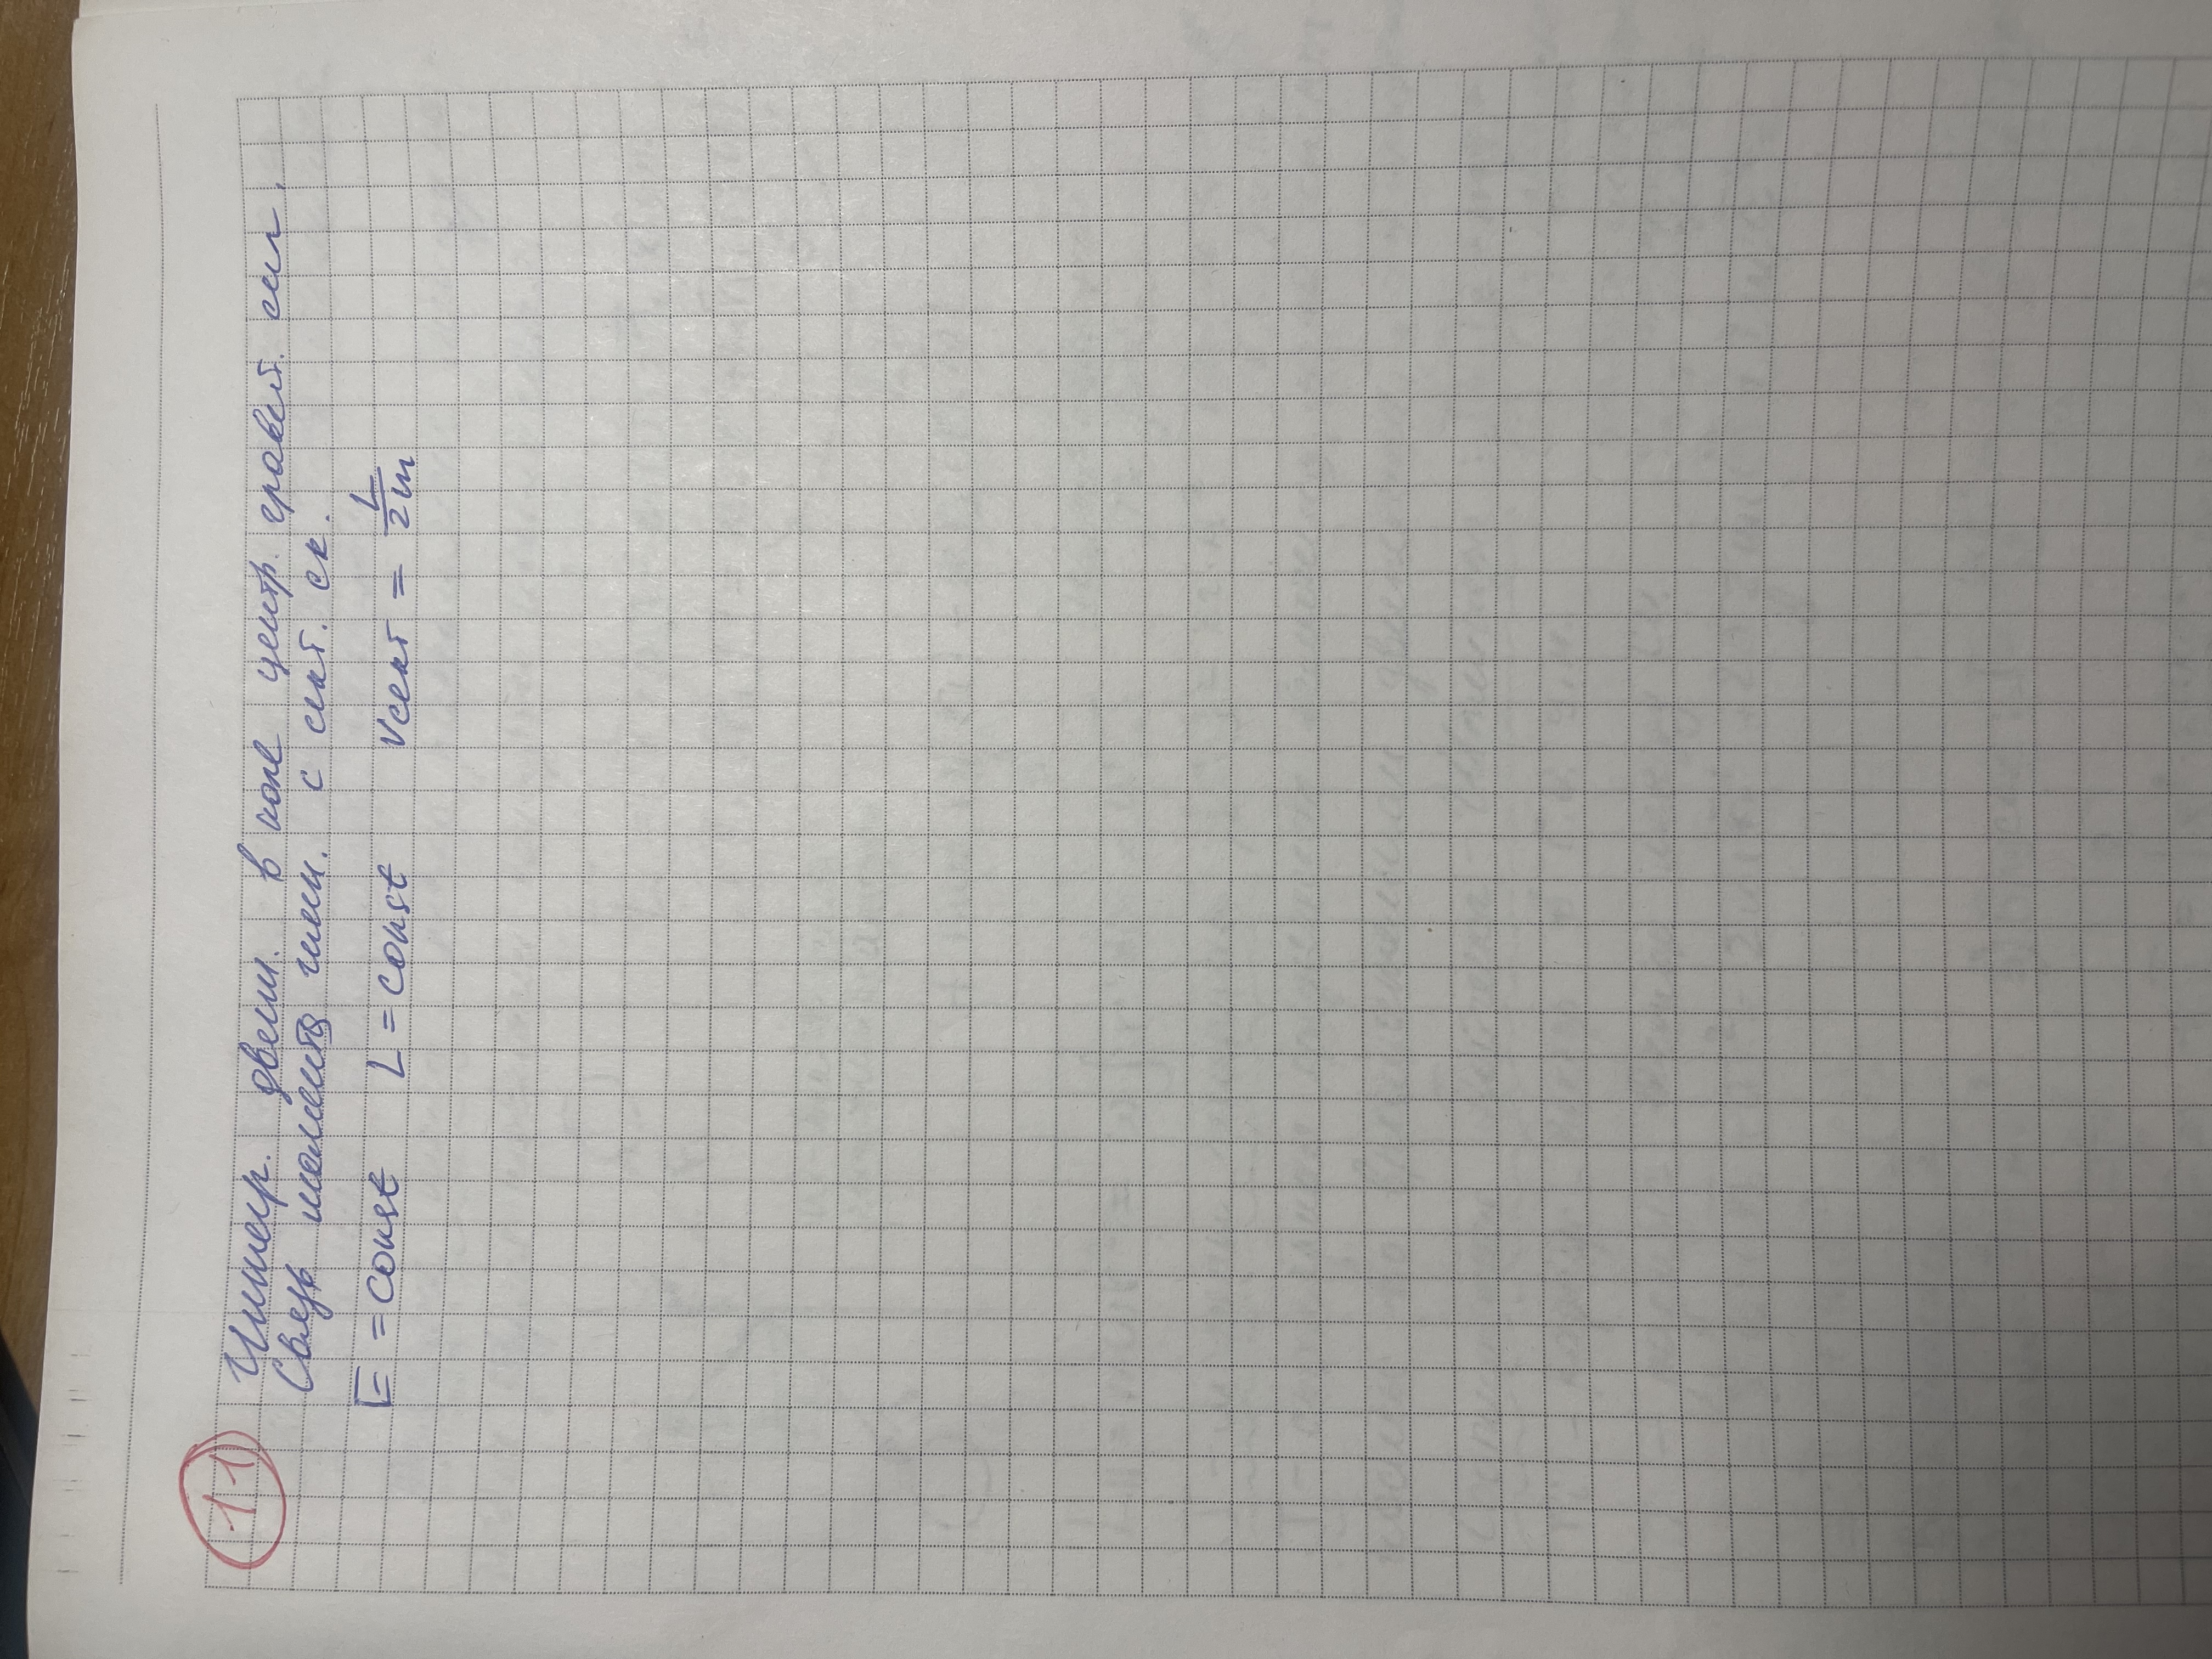 11 Интегр. движ. в поле центр. гравит. сил.
Связь момента имп. с сект. ск.
E = const L = const vсект = L/2m